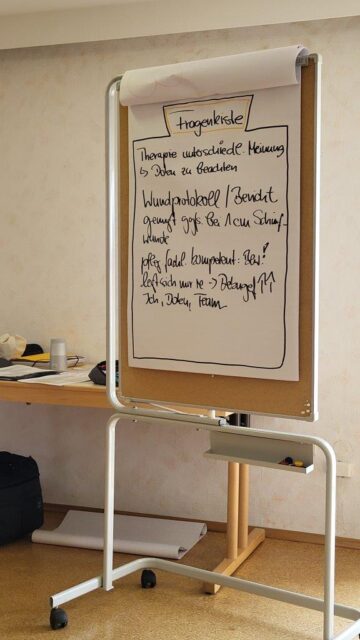 Fragenkiste
Therapie unterschiedl. Meinung
↳ Daten zu beachten
Wundprotokoll / Bericht
genügt ggfs. bei 1 cm Schürf-
wunde
pfleg. fachl. kompetent: Bew!
legt sich nur re →
Ich, Daten, Team